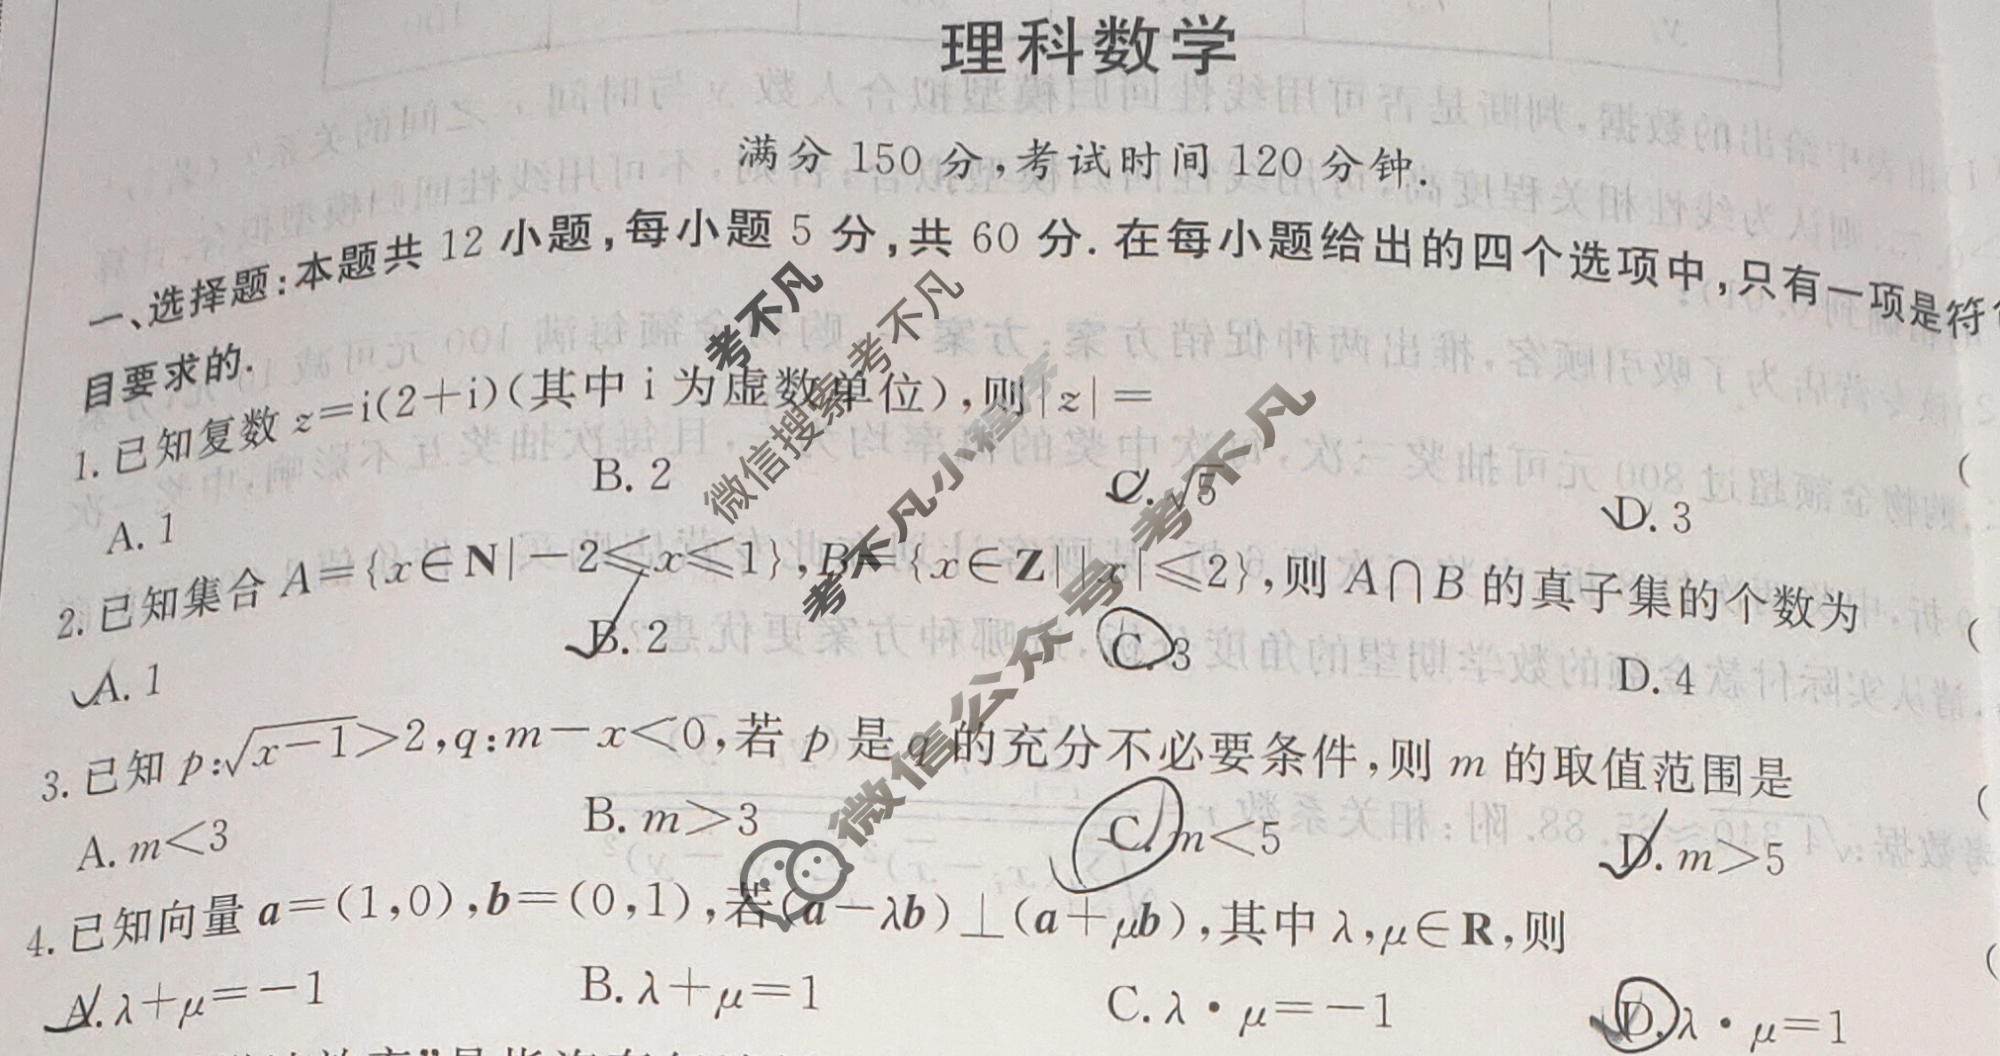 理科数学
满分 150 分,考试时间 120 分钟.
一、选择题:本题共 12 小题,每小题 5 分,共 60 分.在每小题给出的四个选项中,只有一项是符
目要求的.
1.已知复数 z=i(2+i)(其中 i 为虚数单位),则|z|=
A. 1 B. 2 C. √5 D. 3
2.已知集合 A={x∈N|-2≤x≤1},B={x∈Z||x|≤2},则 A∩B 的真子集的个数为
A. 1 B. 2 C. 3 D. 4
3.已知 p:√(x-1)>2,q:m-x<0,若 p 是 q 的充分不必要条件,则 m 的取值范围是
A. m<3 B. m>3 C. m<5 D. m>5
4.已知向量 a=(1,0),b=(0,1),若(a-λb)⊥(a+μb),其中 λ,μ∈R,则
A. λ+μ=-1 B. λ+μ=1 C. λ·μ=-1 D. λ·μ=1
考不凡
微信搜索考不凡
考不凡小程序
微信公众号 考不凡